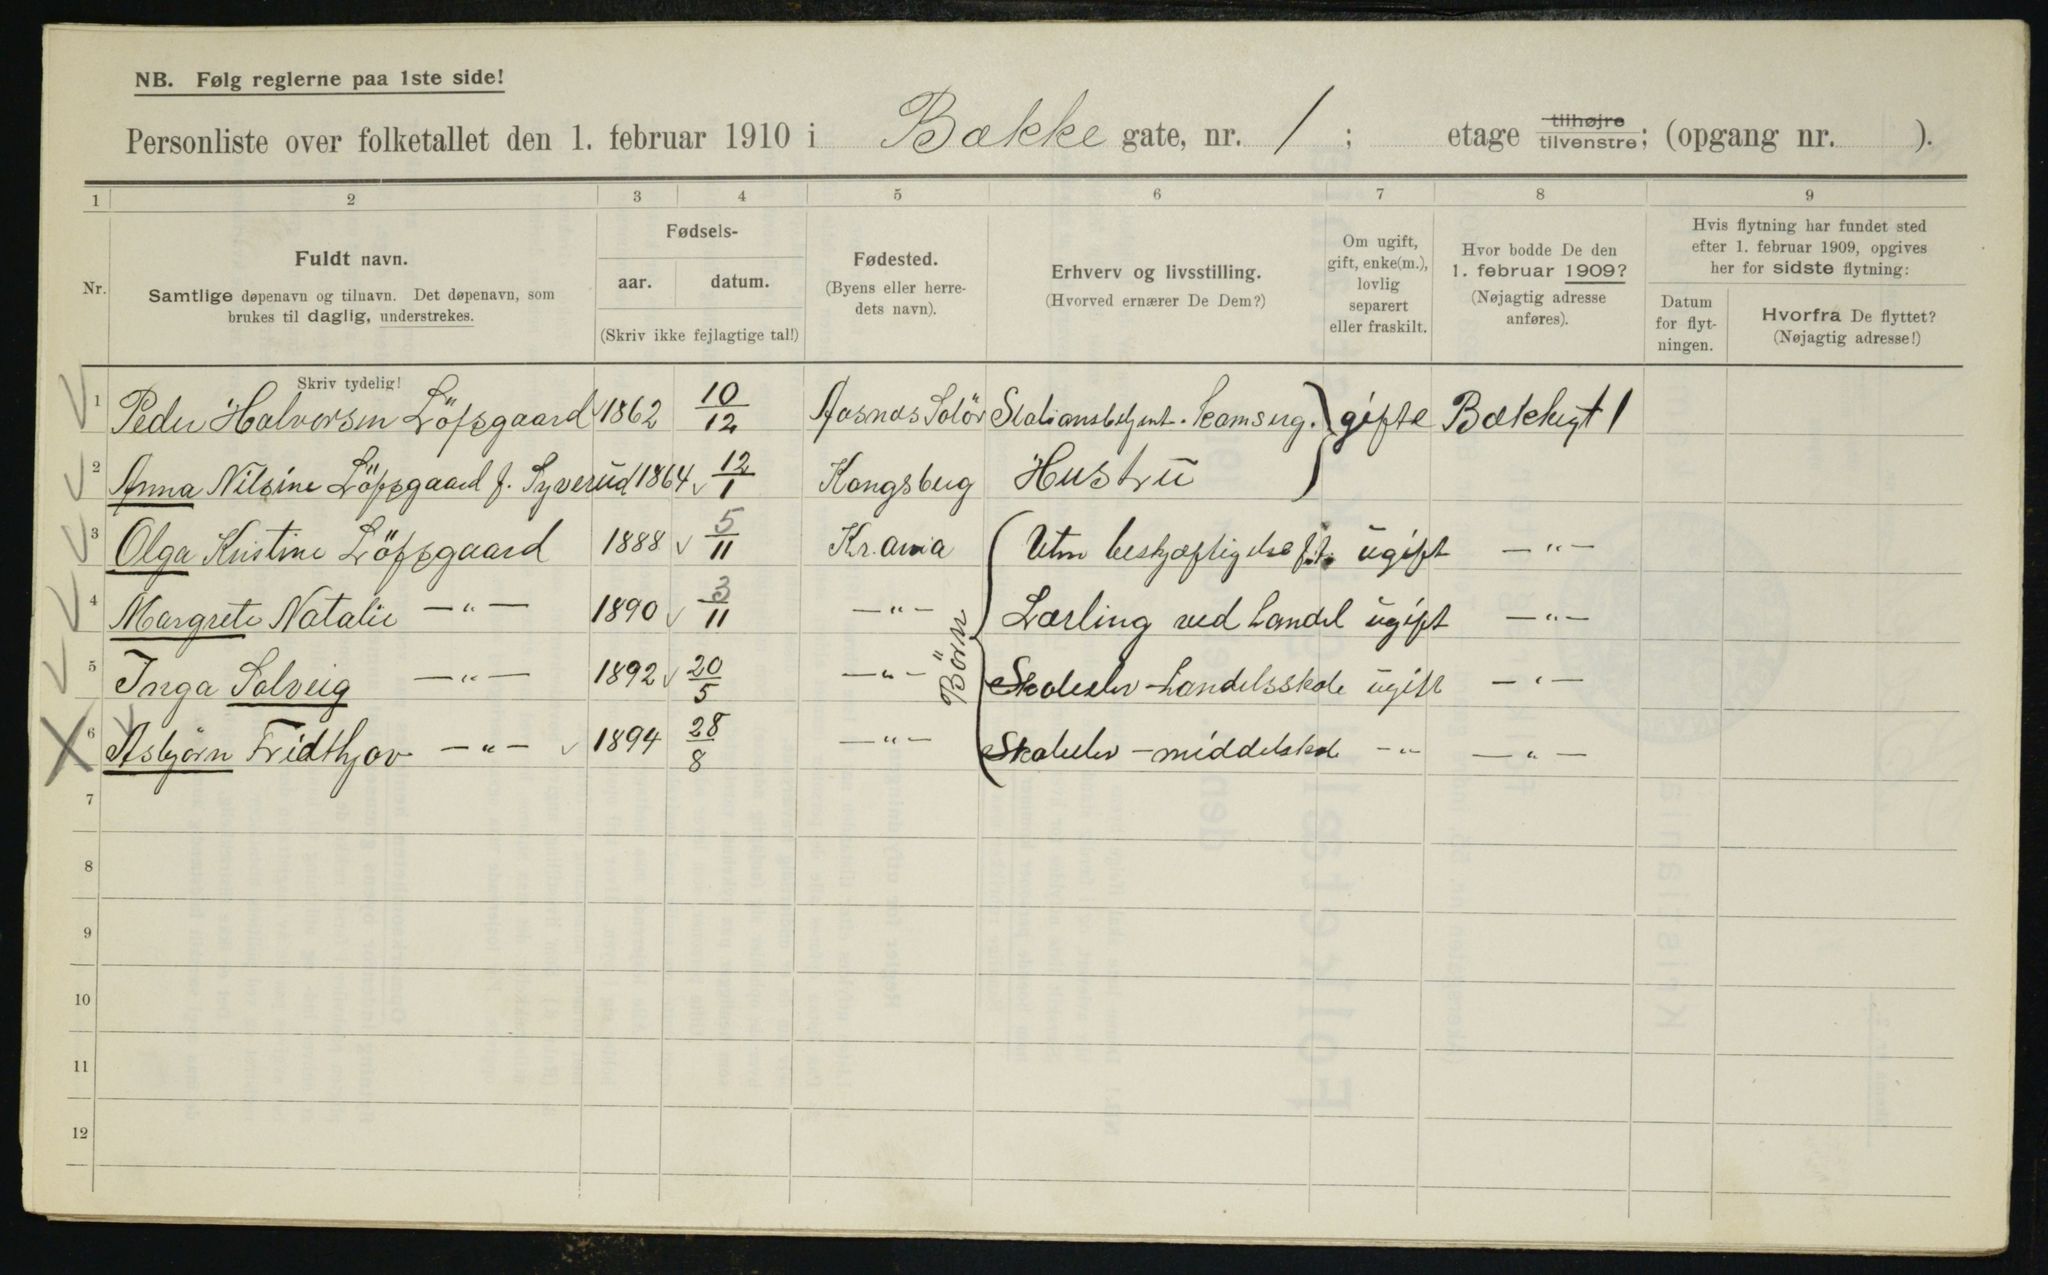 NB. Følg reglerne paa 1ste side!
Personliste over folketallet den 1. februar 1910 i Bække gate, nr. 1 ; etage tilhøjre tilvenstre; (opgang nr. ).
1 2 3 4 5 6 7 8 9
Nr.
Fuldt navn.
Samtlige døpenavn og tilnavn. Det døpenavn, som
brukes til daglig, understrekes.
Skriv tydelig!
Fødsels-
aar. datum.
(Skriv ikke fejlagtige tal!)
Fødested.
(Byens eller herre-
dets navn).
Erhverv og livsstilling.
(Hvorved ernærer De Dem?)
Om ugift,
gift, enke(m.),
lovlig
separert
eller fraskilt.
Hvor bodde De den
1. februar 1909?
(Nøjagtig adresse
anføres).
Hvis flytning har fundet sted
efter 1. februar 1909, opgives
her for sidste flytning:
Datum
for flyt-
ningen.
Hvorfra De flyttet?
(Nøjagtig adresse!)
1 Peder Halversen Löfsgaard 1862 10/12 Aasnæs Solör gifte Bækkegt 1
2 Anna Nilsine Löfsgaard f. Syverud 1864 12/1 Kongsberg Hustru
3 Olga Kristine Löfsgaard 1888 5/11 Kr.ania Uten beskjæftigelse f.t. ugift —"—
4 Margrete Natalie —"— 1890 3/11 —"— Lærling ved Handel ugift —"—
5 Inga Solveig —"— 1892 20/5 —"— Skoleelev - Handelsskole ugift —"—
6 Asbjørn Fridthjov —"— 1894 28/8 —"— Skoleelev - middelskole —"— —"—
Börn
7
8
9
10
11
12